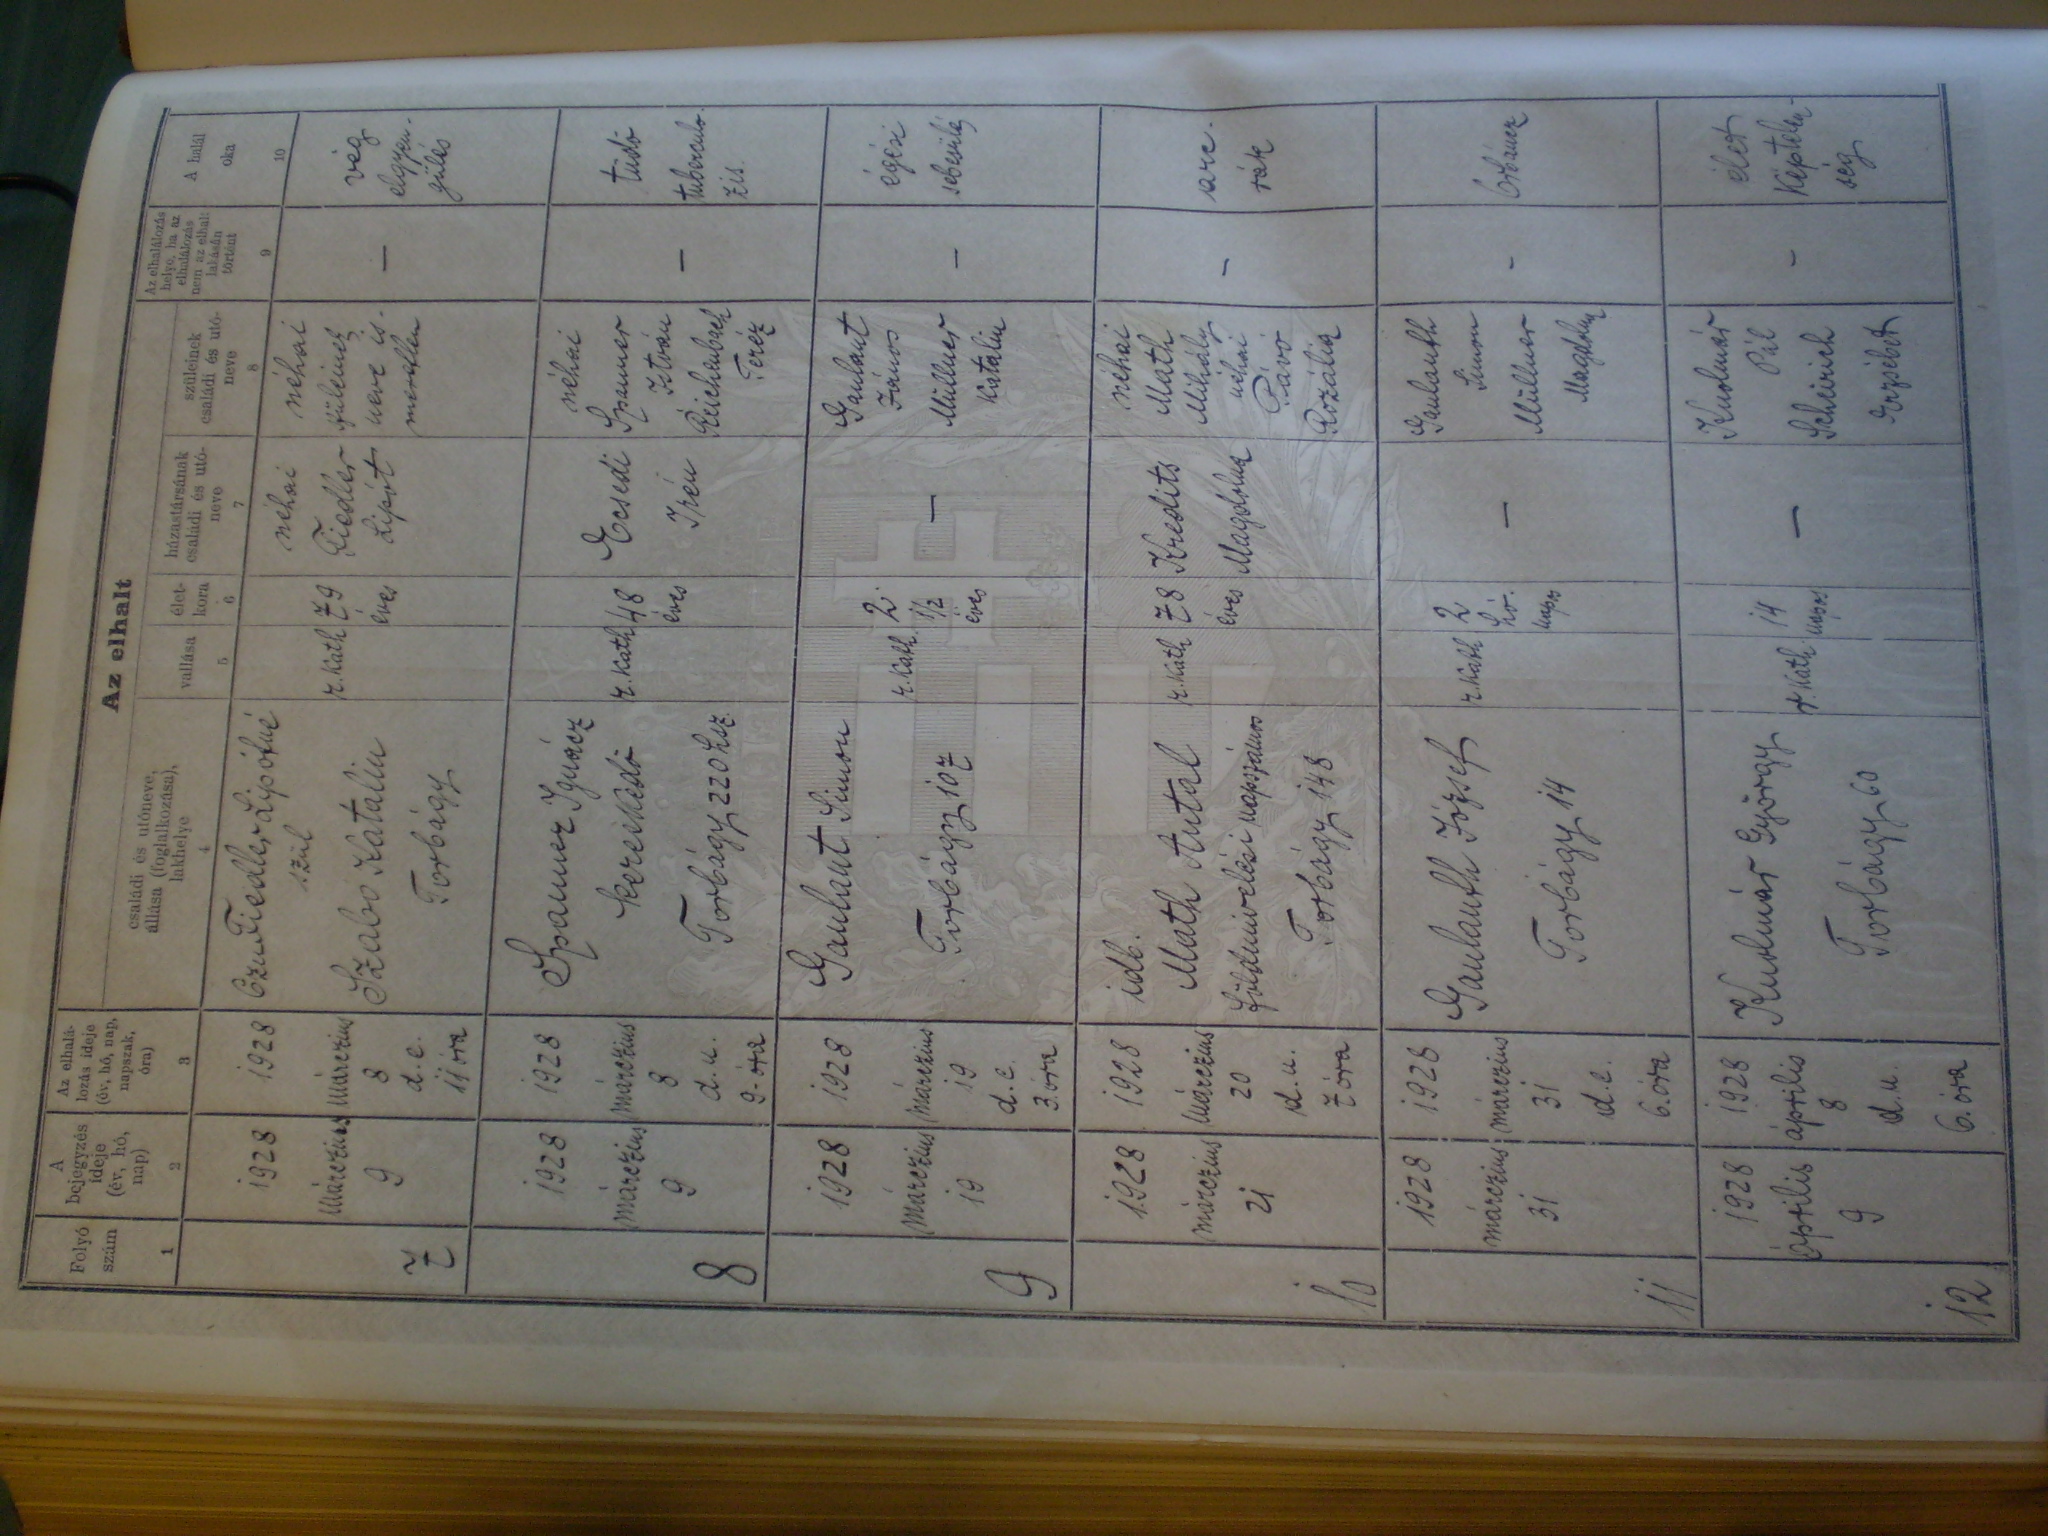 Az elhalt
Folyó
szám
A
bejegyzés
ideje
(év, hó,
nap)
Az elhalá-
lozás ideje
(év, hó, nap,
napszak,
óra)
családi és utóneve,
állása (foglalkozása),
lakhelye
vallása
élet-
kora
házastársának
családi és utó-
neve
szüleinek
családi és utó-
neve
Az elhalálozás
helye, ha az
elhalálozás
nem az elhalt
lakásán
történt
A halál
oka
1
2
3
4
5
6
7
8
9
10
7
1928
Márczius
9
1928
Márczius
8
d. e.
11 óra
Özv. Fiedler Lipótné
szül
Szabó Katalin
Torbágy
r. kath
79
éves
néhai
Fiedler
Lipót
néhai
szüleinek
neve is-
meretlen
—
vég
elgyen-
gülés
8
1928
márczius
9
1928
márczius
8
d. u.
9. óra
Spanner Ignácz
kereskedő
Torbágy 220 hsz.
r. kath
48
éves
Ecsedi
Irén
néhai
Spanner
István
Reichenbach
Teréz
—
tüdő
tuberculo-
zis.
9
1928
Márczius
19
1928
Márczius
19
d. e.
3. óra
Gaulaut Simon
Torbágy 107
r. kath.
2
1/2
éves
—
Gaulaut
János
Müllner
Katalin
—
égési
sebesülés
10
1928
márczius
21
1928
Márczius
20
d. u.
7 óra
idb.
Math Antal
földmivelési napszámos
Torbágy 148
r. kath
78
éves
Kredits
Magdolna
néhai
Math
Mihály
néhai
Pávó
Rozália
—
arc-
rák
11
1928
márczius
31
1928
márczius
31
d. e.
6. óra
Gaulauth József
Torbágy 14
r. kath
2
hó.
napos
—
Gaulauth
Simon
Müllner
Magdolna
-
Orbáncz
12
1928
április
9
1928
április
8
d. u.
6. óra
Knolmár György
Torbágy 60
r. kath.
14
napos
—
Knolmár
Pál
Scheirich
Erzsébet
-
élet
képtelen-
ség